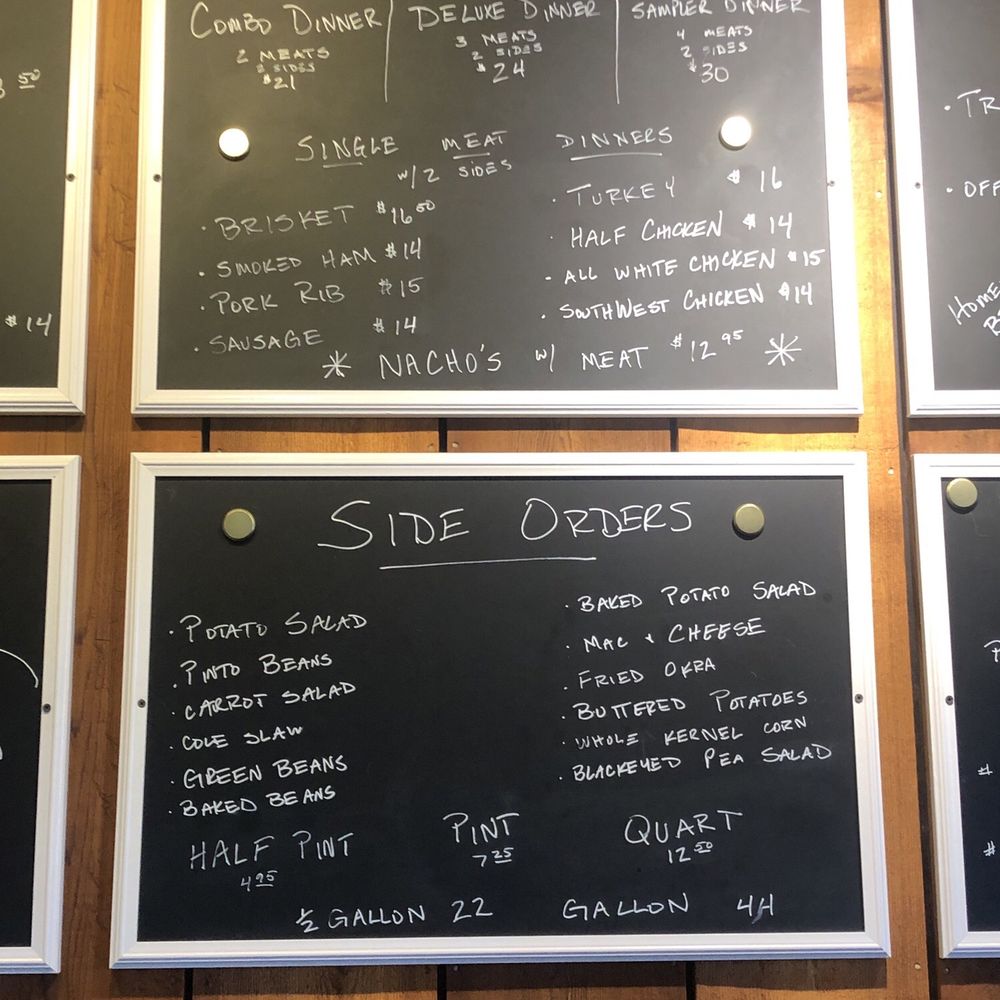 COMBO DINNER
2 MEATS
2 SIDES
$21
DELUXE DINNER
3 MEATS
2 SIDES
$24
SAMPLER DINNER
4 MEATS
2 SIDES
$30
SINGLE MEAT DINNERS
w/2 SIDES
· BRISKET $16 00
· SMOKED HAM $14
· PORK RIB $15
· SAUSAGE $14
· TURKEY $16
· HALF CHICKEN $14
· ALL WHITE CHICKEN $15
· SOUTHWEST CHICKEN $14
* NACHO'S w/ MEAT $12 95 *
SIDE ORDERS
· POTATO SALAD
· PINTO BEANS
· CARROT SALAD
· COLE SLAW
· GREEN BEANS
· BAKED BEANS
· BAKED POTATO SALAD
· MAC & CHEESE
· FRIED OKRA
· BUTTERED POTATOES
· WHOLE KERNEL CORN
· BLACKEYED PEA SALAD
HALF PINT
4 95
PINT
7 25
QUART
12 50
1/2 GALLON 22
GALLON 44
$14
· TR
· OFF
HOME